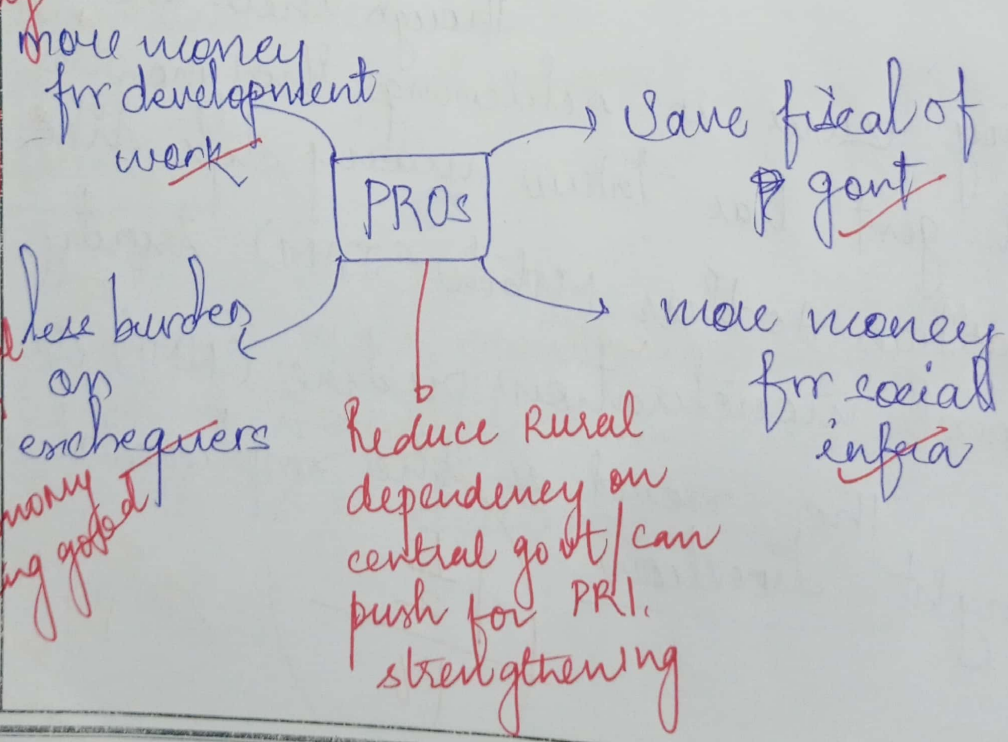 more money
for development
work
Save fiscal of
govt
PROs
less burden
on
exchequers
more money
for social
infra
Reduce Rural
dependency on
central govt/can
push for PRI.
strengthening